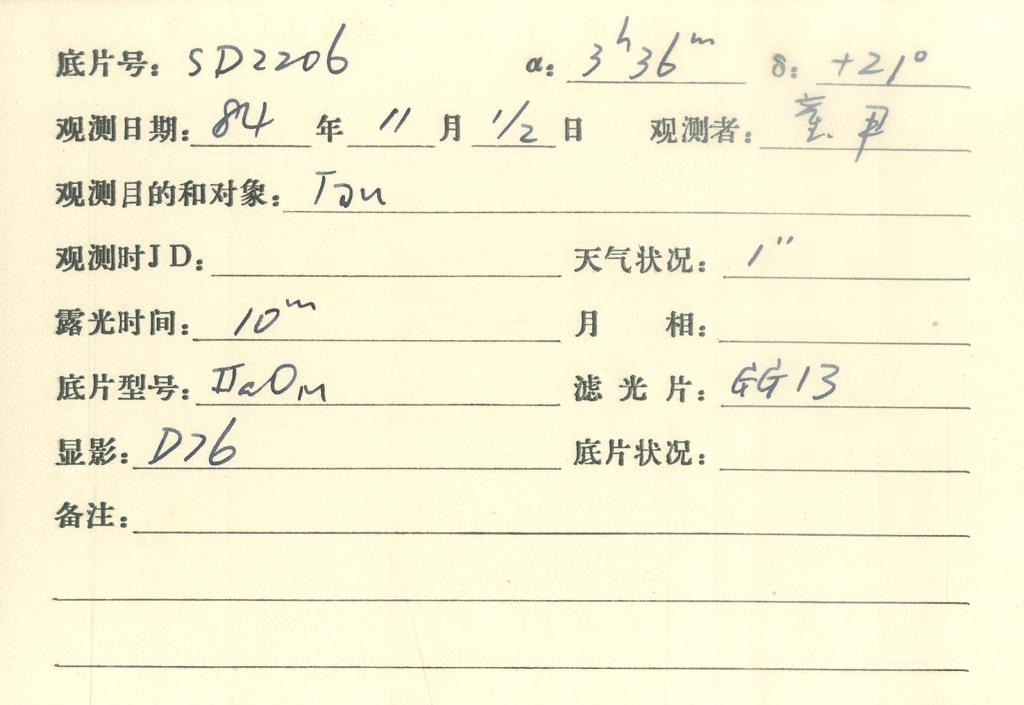 底片号： SD2206 α： 3ʰ36ᵐ δ： +21°
观测日期： 84 年 11 月 1/2 日 观测者： 童
观测目的和对象： Tau
观测时JD： 天气状况： 1″
露光时间： 10ᵐ 月 相：
底片型号： IIaO 滤光片： GG13
显影： D76 底片状况：
备注：